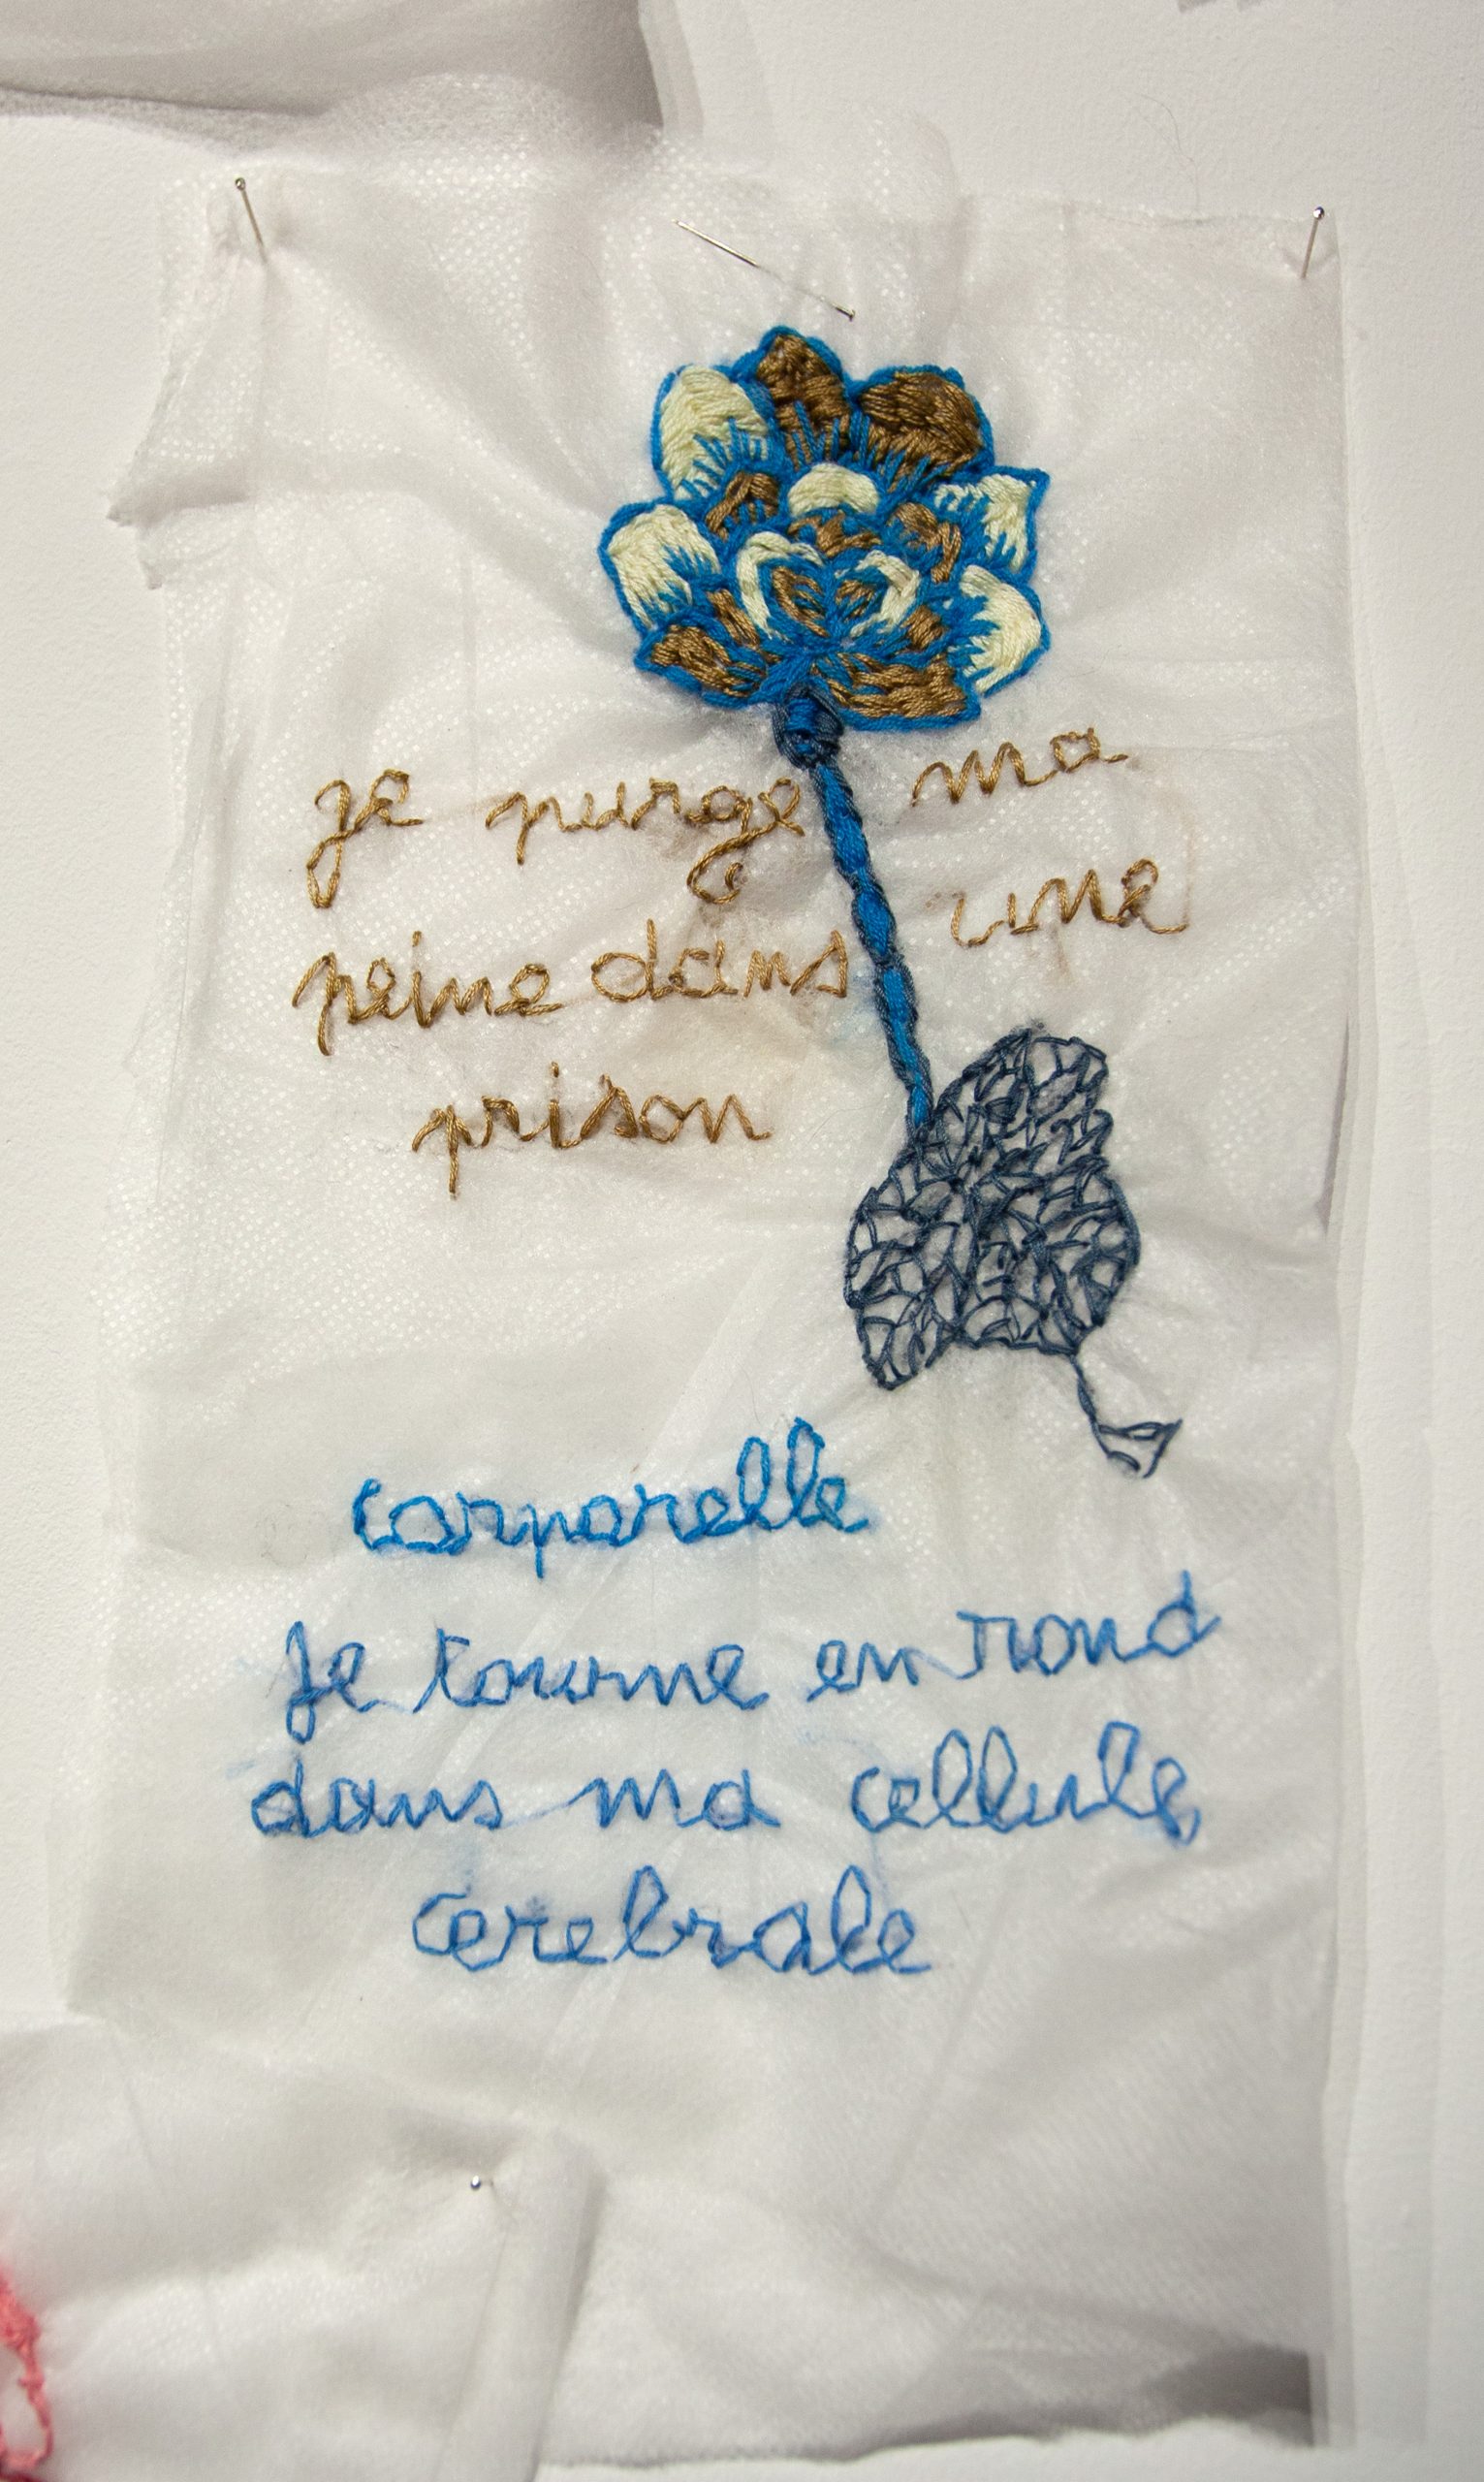 je purge ma
peine dans une
prison
corporelle
Je tourne en rond
dans ma cellule
cerebrale